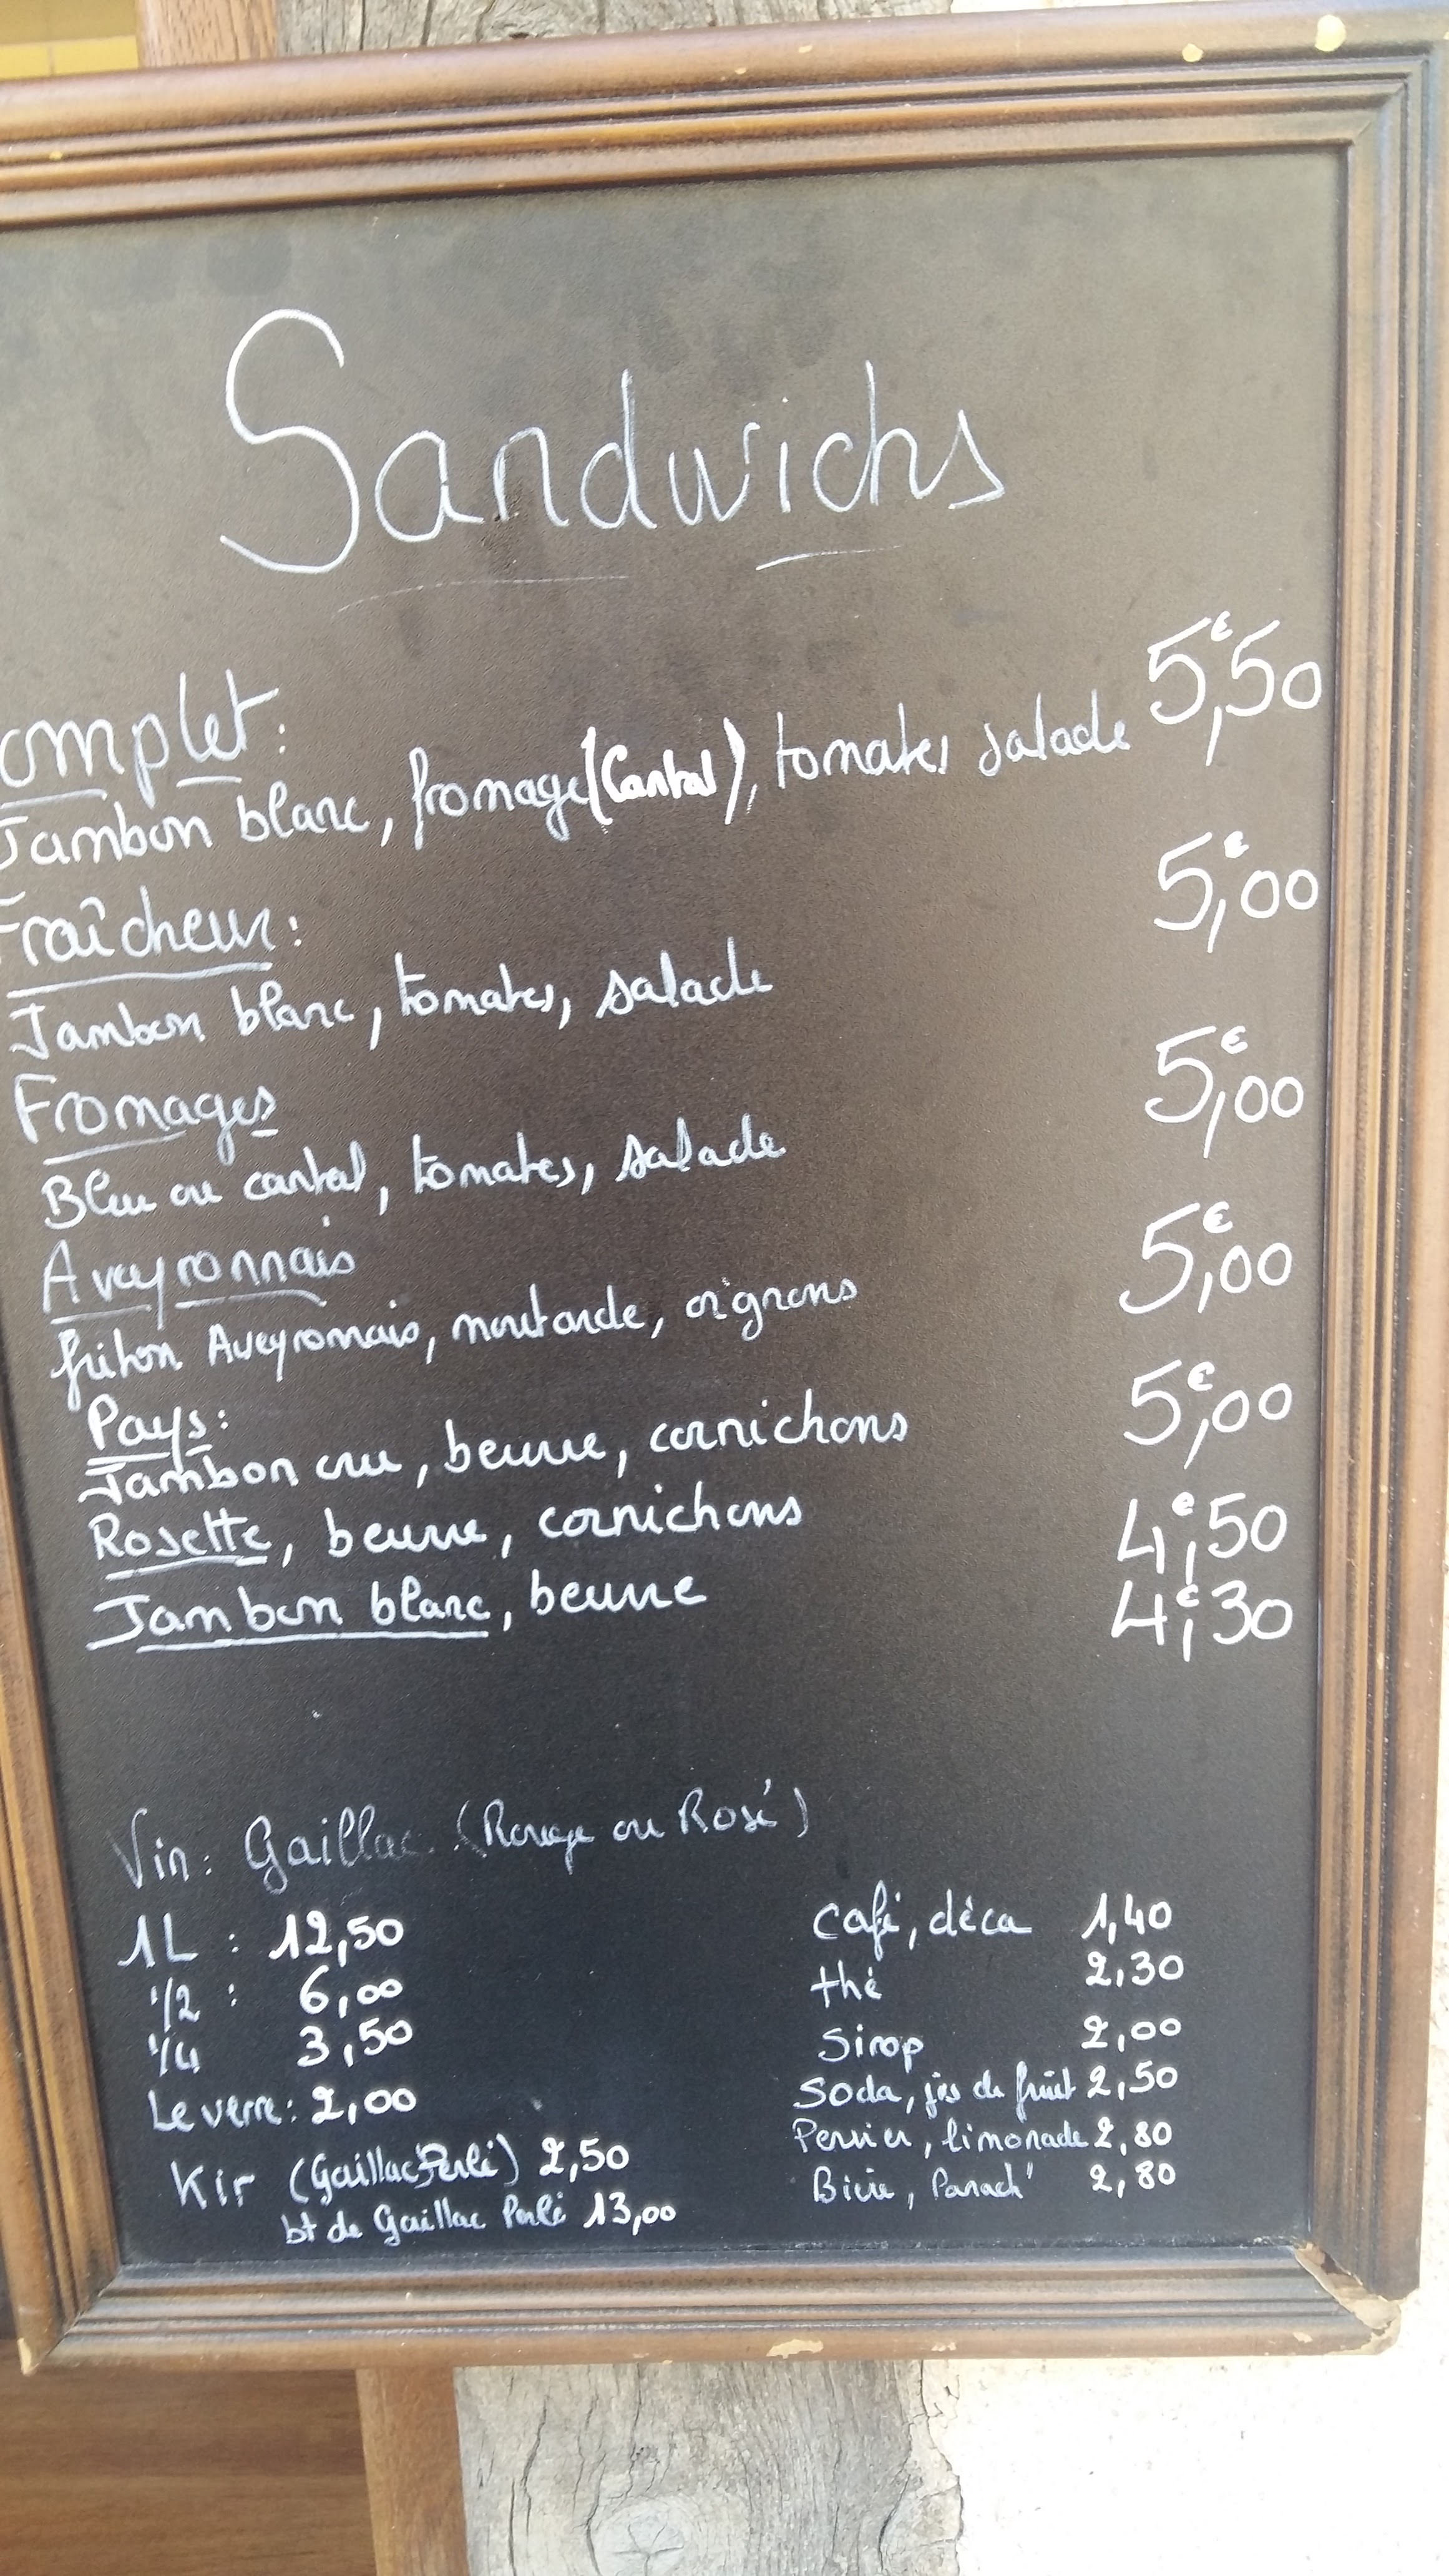 Sandwichs
omplet: 5,€50
Jambon blanc, fromage (Cantal), tomates salade
Fraîcheur: 5,€00
Jambon blanc, tomates, salade
Fromages 5,€00
Bleu ou cantal, tomates, salade
Aveyronnais 5,€00
friton Aveyronnais, moutarde, oignons
Pays: 5,€00
Jambon cru, beurre, cornichons
Rosette, beurre, cornichons 4,€50
Jambon blanc, beurre 4,€30
Vin: Gaillac (Rouge ou Rosé)
1L : 12,50
1/2 : 6,00
1/4 3,50
Le verre: 2,00
Kir (Gaillac Perlé) 2,50
bt de Gaillac Perlé 13,00
Café, déca 1,40
thé 2,30
Sirop 2,00
Soda, jus de fruit 2,50
Perrier, limonade 2,80
Bière, Panach' 2,80